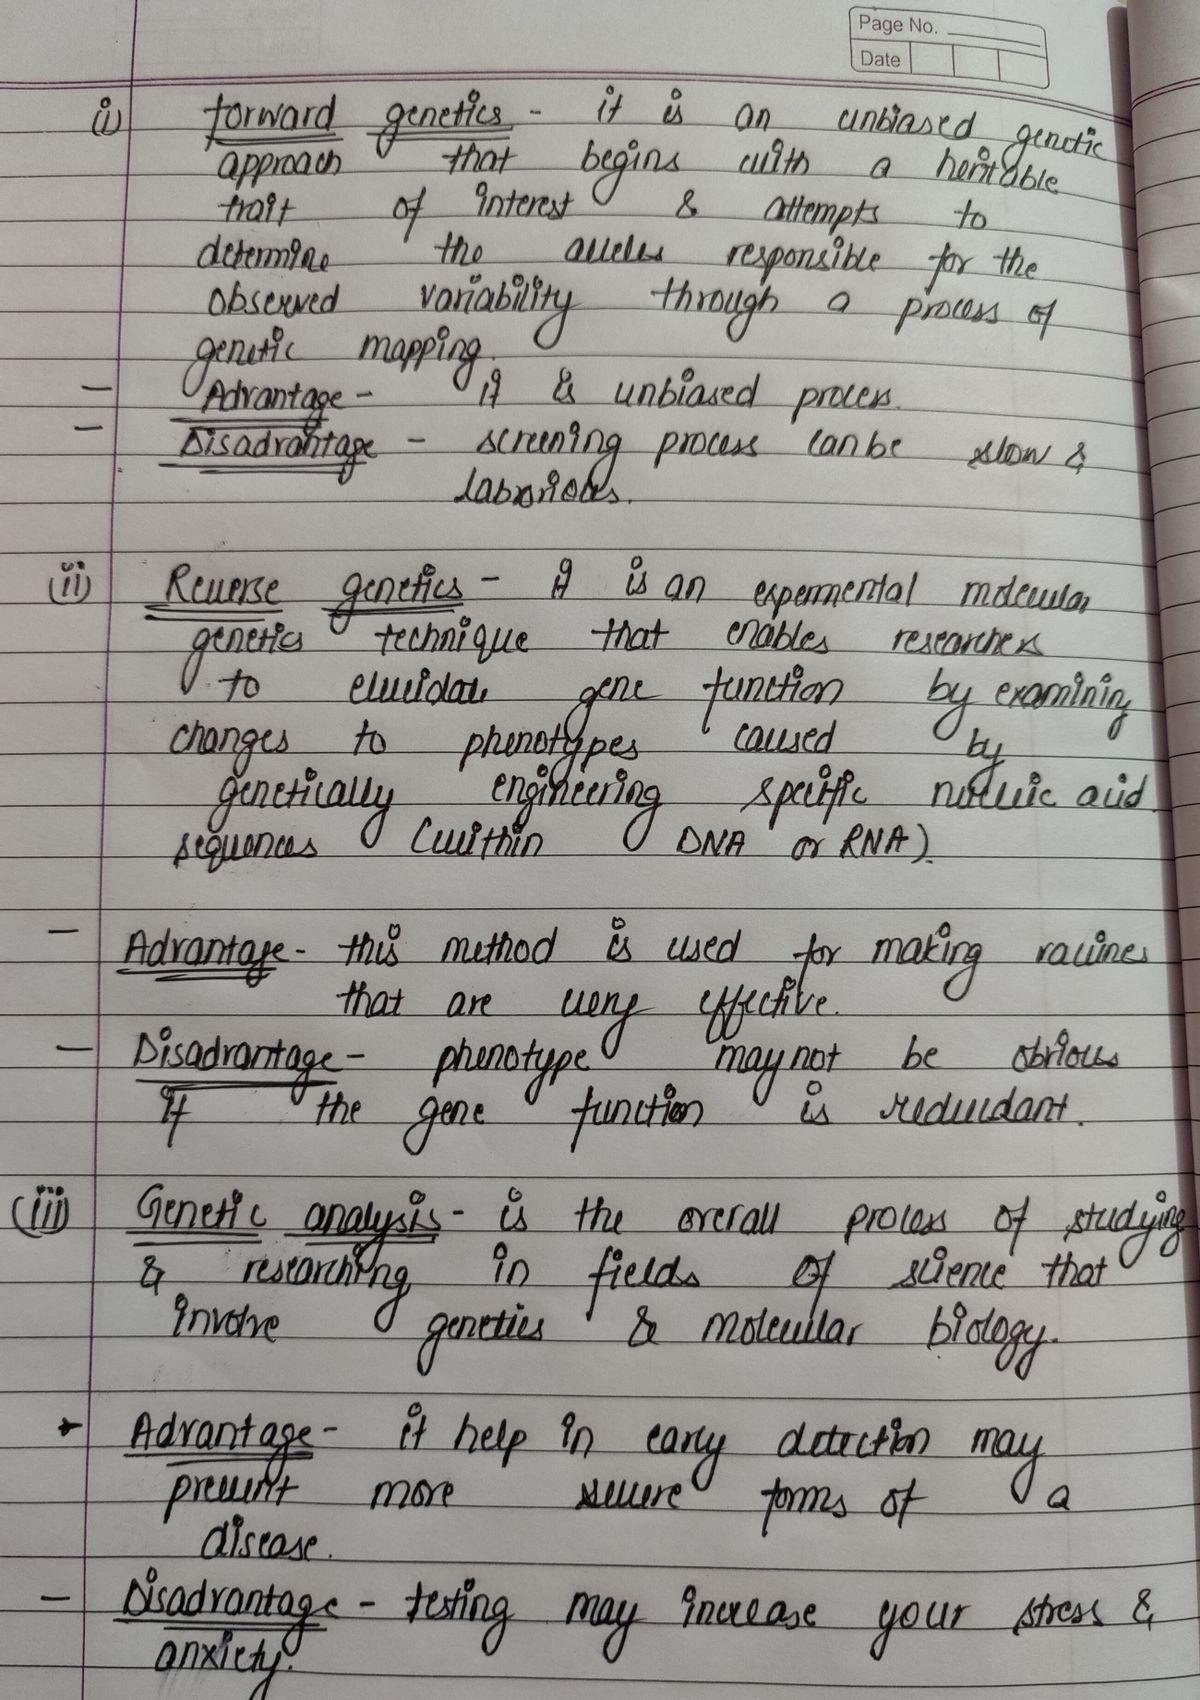 Page No.
Date
(i) forward genetics - it is an unbiased genetic
approach that begins with a heritable
trait of interest & attempts to
determine the alleles responsible for the
observed variability through a process of
genetic mapping.
- Advantage - it is unbiased process.
- Disadvantage - screening process can be slow &
laborious.
(ii) Reverse genetics - it is an expermental molecular
genetics technique that enables researchers
to elucidate gene function by examining
changes to phenotypes caused by
genetically engineering specific nucleic acid
sequences (within DNA or RNA).
- Advantage - this method is used for making vaccines
that are very effective.
- Disadvantage - phenotype may not be obvious
if the gene function is redundant.
(iii) Genetic analysis - is the overall process of studying
& researching in fields of science that
involve genetics & molecular biology.
- Advantage - it help in early detection may
prevent more severe forms of a
disease.
- Disadvantage - testing may increase your stress &
anxiety.